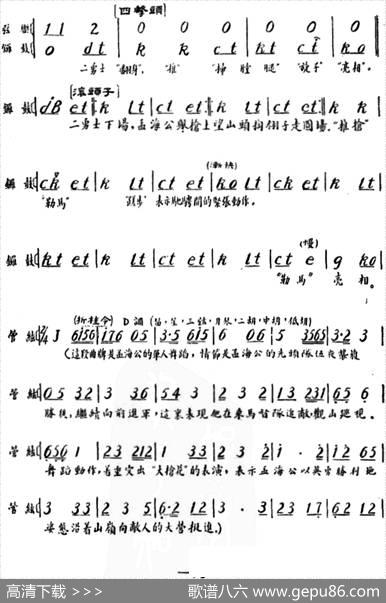 〔四擊頭〕
弦樂 1 1 2 | 0 0 | 0 0 | 0 0 | 0 0
鑼鼓 0 d t | k k | c t | k t c t | k o
二勇士“翻身”，“推” “掃膛腿”“放子” “亮相”。
〔滾頭子〕
鑼鼓 d B e t | k L t | c t e t | k L t | c t e t | k k
二勇士下場，孟海公舉槍上望山頭掏翎子走圓場。“推槍”
鑼鼓 c k e t | k L t | c t e t | k o L t | c k e t | k L t
“勒馬” 表示馳騁間的緊張動作。
鑼鼓 k t e t | k L t | c t e t | k L t | c t e | g k o
(慢)
“勒馬” 亮相。
〔折桂令〕 D調 (笛,笙,三弦,月琴,二胡,中胡,低胡)
管絃 2/4 J 6156 | 1 7 6 0 5 | 3·5 6 1 5 | 6 0 6 | 5 3 5 6 5 | 3·2 3
(這段曲牌是孟海公的單人舞蹈，情節是孟海公的先頭隊伍夜襲獲
管絃 0 5 3 2 | 3 3 6 | 5 4 3 | 2 3 2 | 1 3 2 3 1 | 6 5 6
勝後，繼續向前進軍，這裏表現他在乘馬督隊追敵，觀山廻視。
管絃 6 5 6 1 | 2 3 2 1 2 | 1 3 3 | 2 3 2 | 1 · 2 | 1 2 6 5
舞蹈動作，着重突出“大槍花”的表演，表示孟海公以英勇勝利地
管絃 3 3 3 | 2 3 5 | 6·2 1 2 | 3 · 3 | 2 3 1 7 | 6 2 1 2
姿態沿着山嶺向敵人的大營挺進。)
高清下载 >>>
歌谱八六 www.gepu86.com